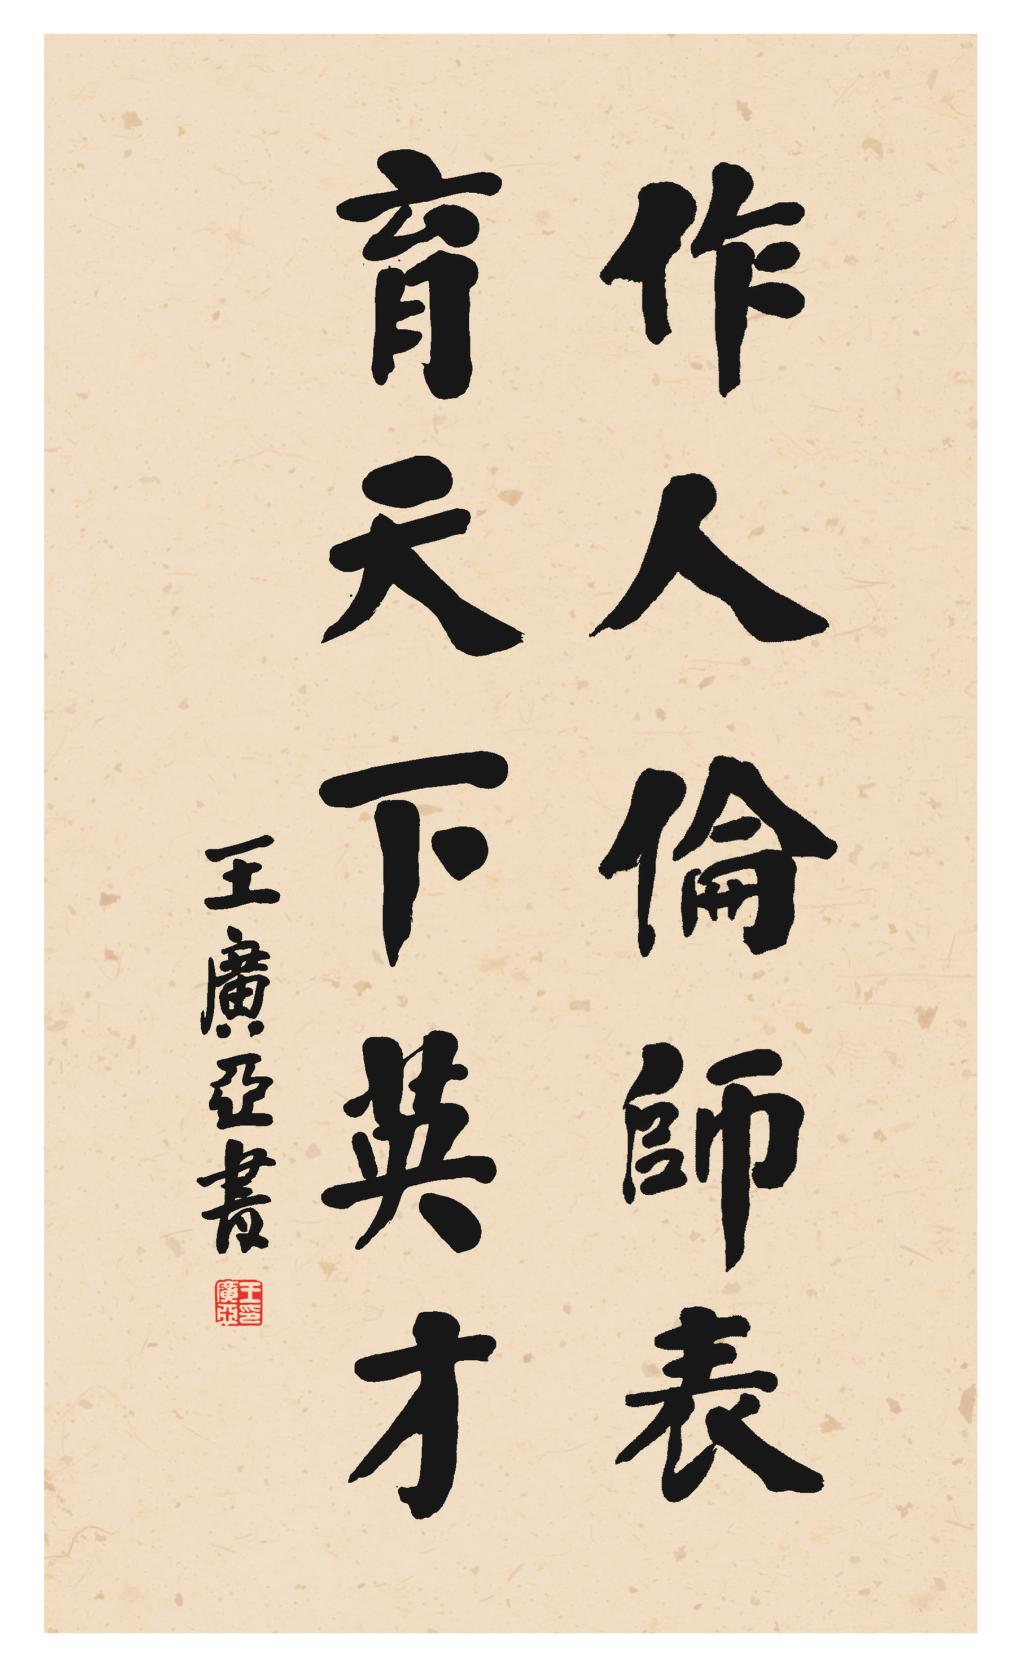 作人倫師表
育天下英才
王廣亞書
王印廣亞